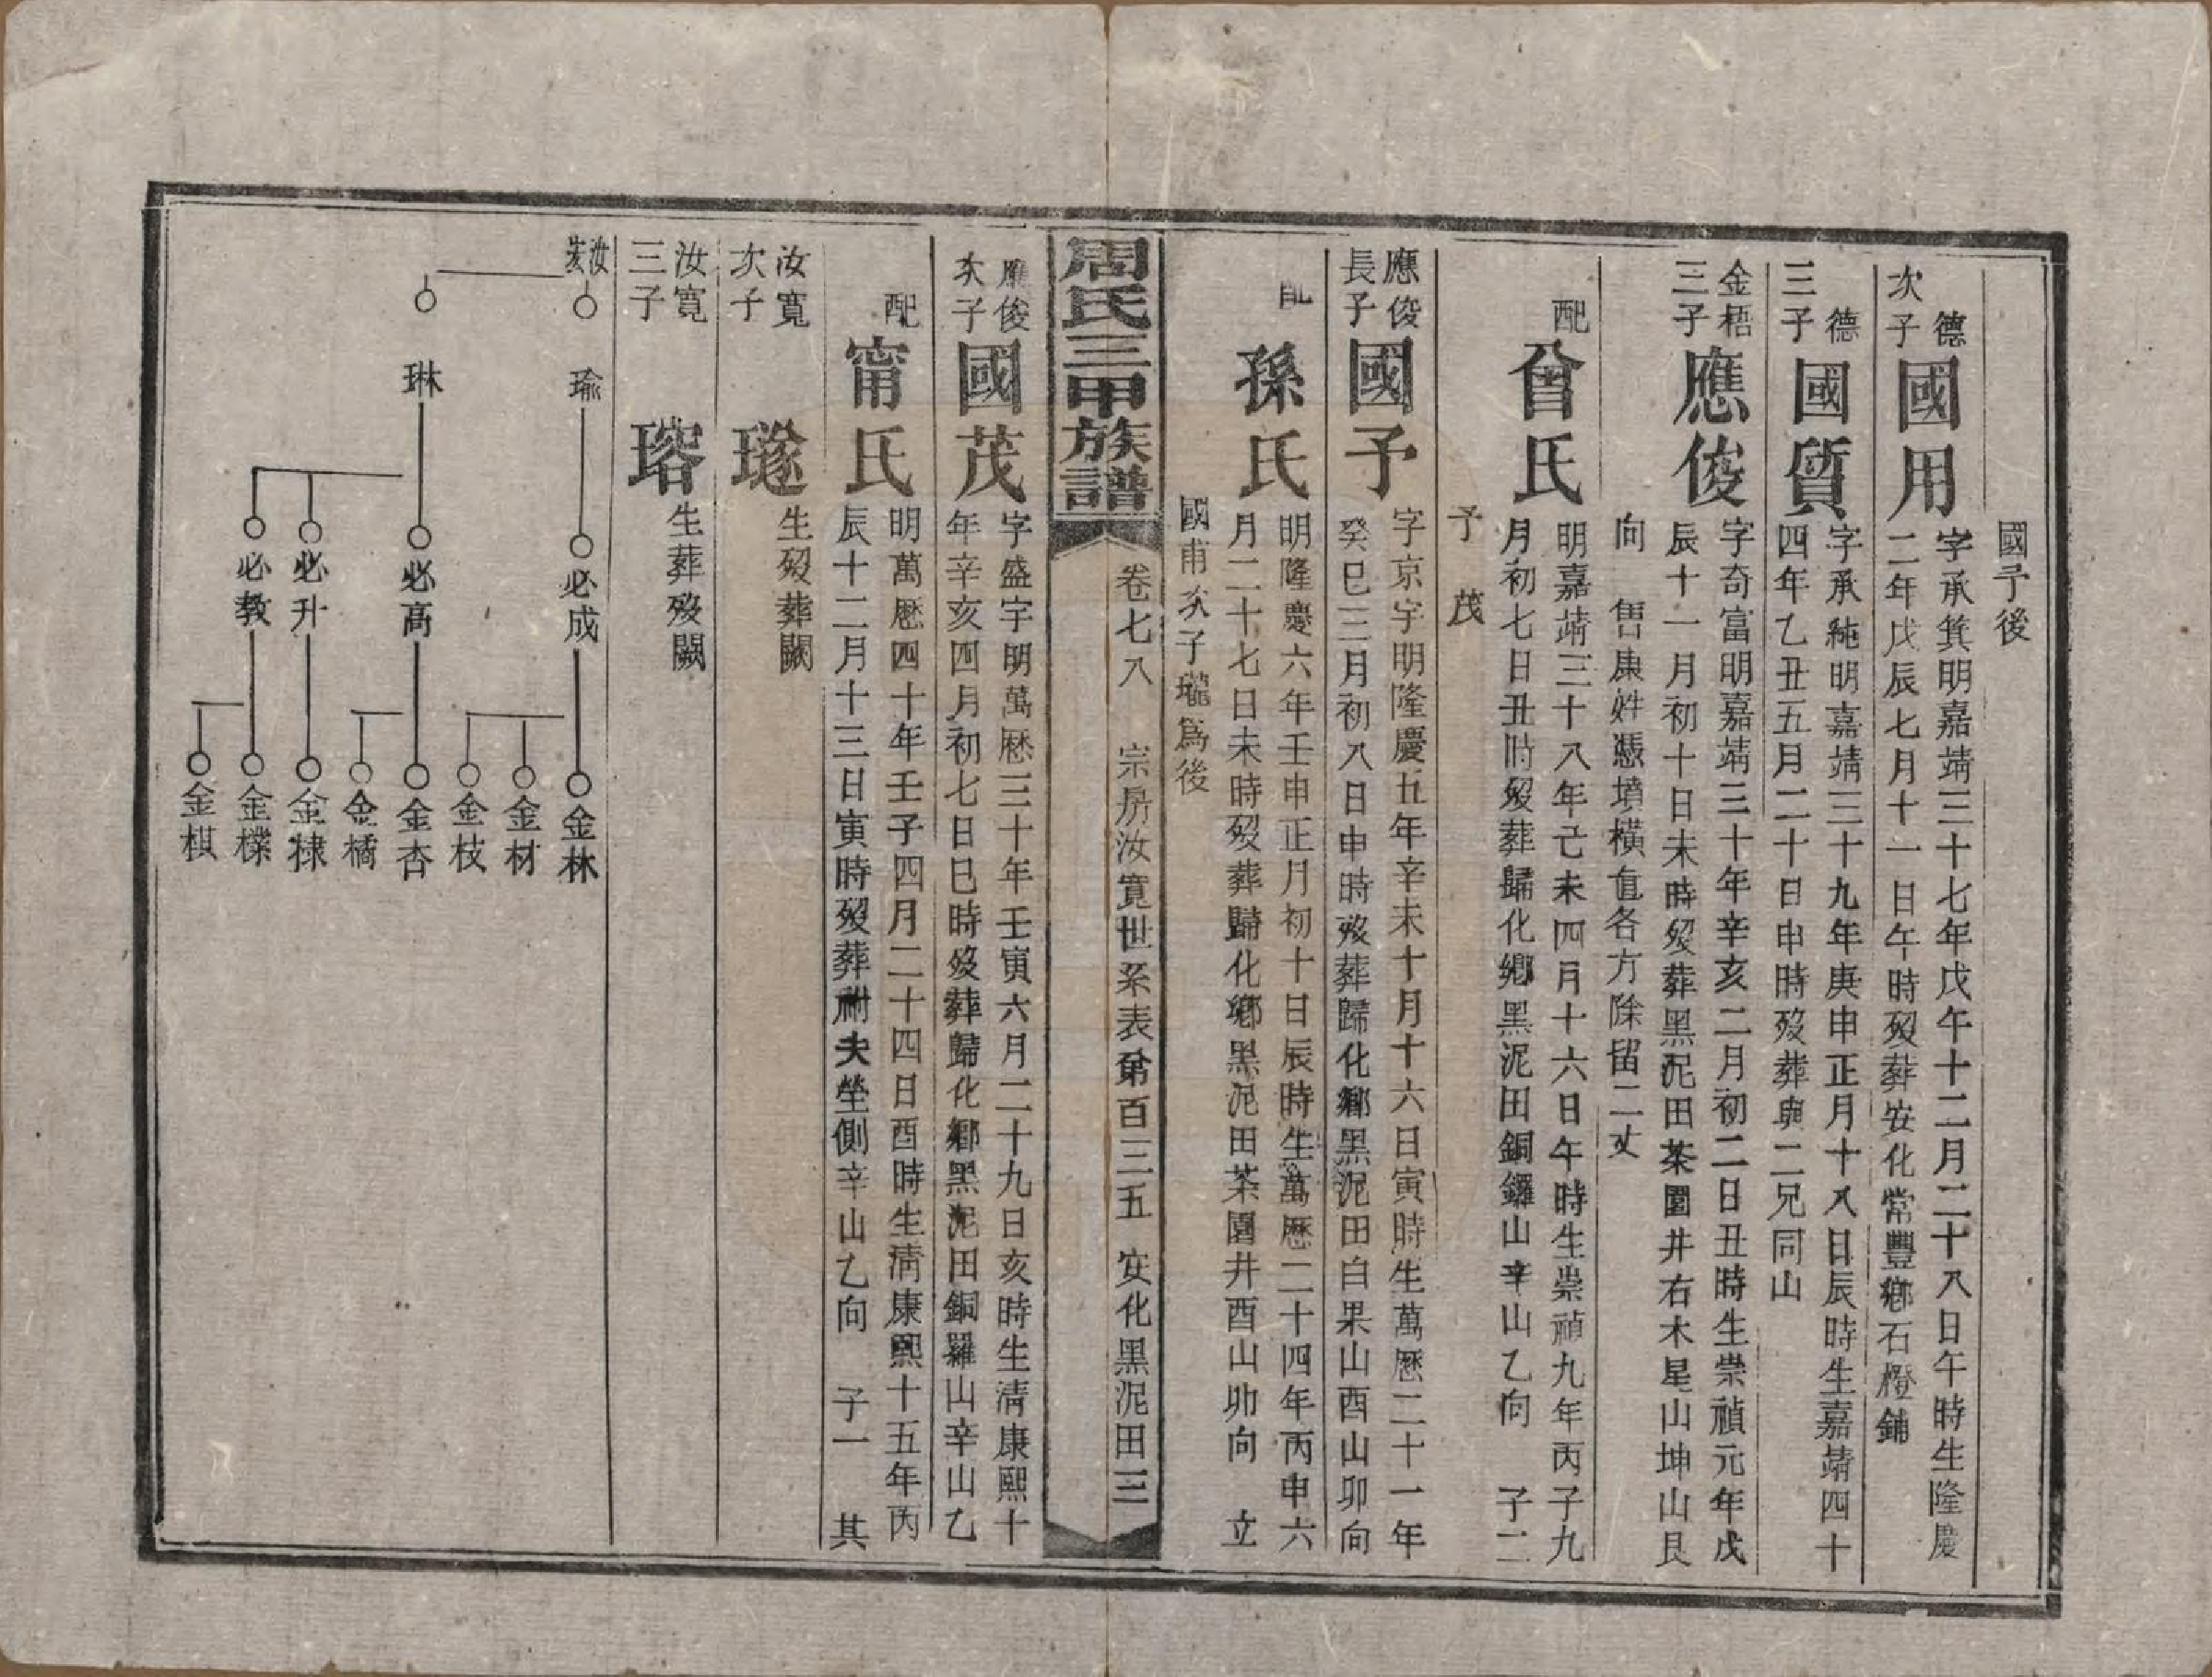 國予後
德次子
國用
字承箕明嘉靖三十七年戊午十二月二十八日午時生隆慶
二年戊辰七月十一日午時歿葬安化常豐鄉石橙鋪
德三子
國質
字承純明嘉靖三十九年庚申正月十八日辰時生嘉靖四十
四年乙丑五月二十日申時歿葬與二兄同山
金梧三子
應俊
字奇富明嘉靖三十年辛亥二月初二日丑時生崇禎元年戊
辰十一月初十日未時歿葬黑泥田茶園井右木星山坤山艮
向 售康姓憑墳橫直各方除留二丈
配
曾氏
明嘉靖三十八年己未四月十六日午時生崇禎九年丙子九
月初七日丑時歿葬歸化鄉黑泥田銅鑼山辛山乙向 子二
予 茂
應俊長子
國予
字京宇明隆慶五年辛未十月十六日寅時生萬歷二十一年
癸巳三月初八日申時歿葬歸化鄉黑泥田白果山酉山卯向
配
孫氏
明隆慶六年壬申正月初十日辰時生萬歷二十四年丙申六
月二十七日未時歿葬歸化鄉黑泥田茶園井酉山卯向 立
國甫次子瓏為後
周氏三甲族譜
卷七八 宗房汝寬世系表第百三五 安化黑泥田三
應俊次子
國茂
字盛宇明萬歷三十年壬寅六月二十九日亥時生清康熙十
年辛亥四月初七日巳時歿葬歸化鄉黑泥田銅羅山辛山乙
配
甯氏
明萬歷四十年壬子四月二十四日酉時生清康熙十五年丙
辰十二月十三日寅時歿葬祔夫塋側辛山乙向 子一 其
汝寬次子
璲
生歿葬闕
汝寬三子
瑢
生葬歿闕
汝宏
瑜
琳
必成
必高
必升
必教
金林
金材
金枝
金杏
金橘
金棣
金檏
金棋